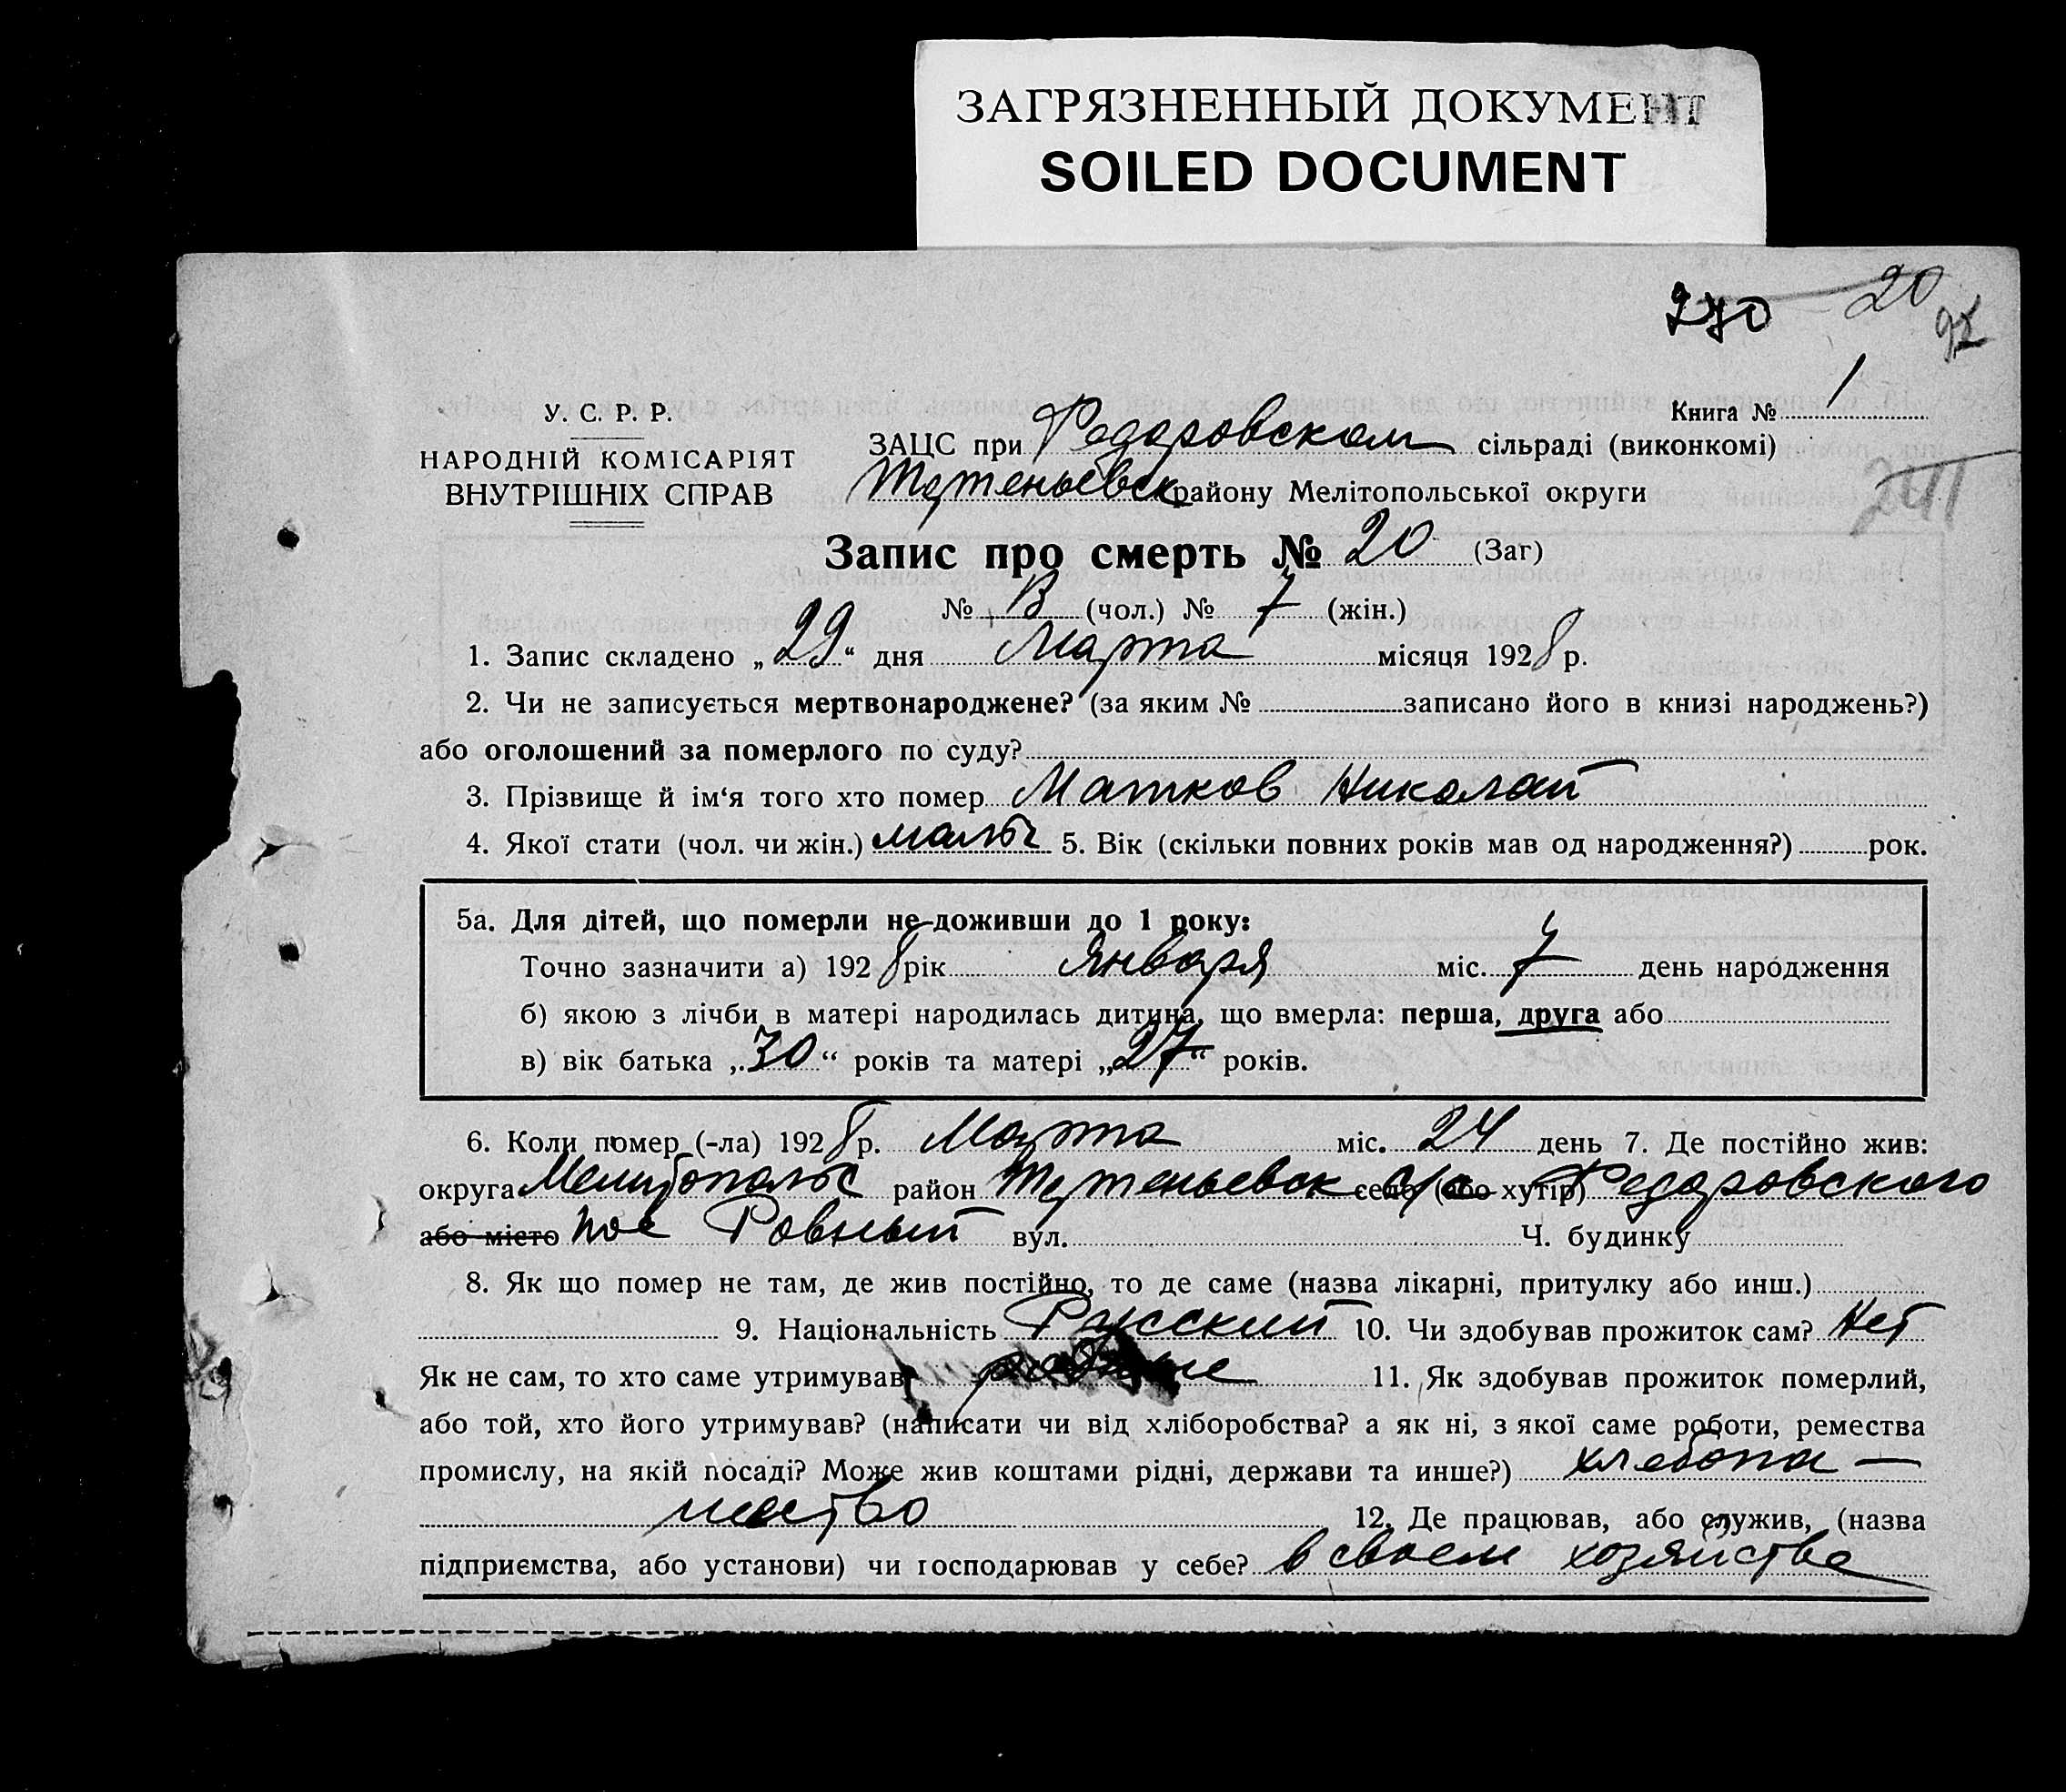 ЗАГРЯЗНЕННЫЙ ДОКУМЕНТ
SOILED DOCUMENT
270 20
92
Книга № 1
У. С. Р. Р.
НАРОДНІЙ КОМІСАРІЯТ
ВНУТРІШНІХ СПРАВ
ЗАЦС при Федоровском сільраді (виконкомі)
району Мелітопольської округи
Запис про смерть № 20 (Заг)
№ 13 (чол.) № 7 (жін.)
1. Запис складено „29“ дня Марта місяця 1928 р.
2. Чи не записується мертвонароджене? (за яким № записано його в книзі народжень?)
або оголошений за померлого по суду?
3. Прізвище й ім‘я того хто помер Матков Николай
4. Якої стати (чол. чи жін.) мальч 5. Вік (скільки повних років мав од народження?) рок.
5а. Для дітей, що померли не-доживши до 1 року:
Точно зазначити а) 1928 рік Января міс. 7 день народження
б) якою з лічби в матері народилась дитина, що вмерла: перша, друга або
в) вік батька „30“ років та матері „27“ років.
6. Коли помер (-ла) 1928 р. Марта міс. 24 день 7. Де постійно жив:
округа район село (або хутір) Федоровского
або місто пос Ровный вул. Ч. будинку
8. Як що помер не там, де жив постійно, то де саме (назва лікарні, притулку або инш.)
9. Національність Русский 10. Чи здобував прожиток сам? Нет
Як не сам, то хто саме утримував 11. Як здобував прожиток померлий,
або той, хто його утримував? (написати чи від хліборобства? а як ні, з якої саме роботи, ремества
промислу, на якій посаді? Може жив коштами рідні, держави та инше?) хлебопа—
шество 12. Де працював, або служив, (назва
підприємства, або установи) чи господарював у себе? в своем хозяйстве